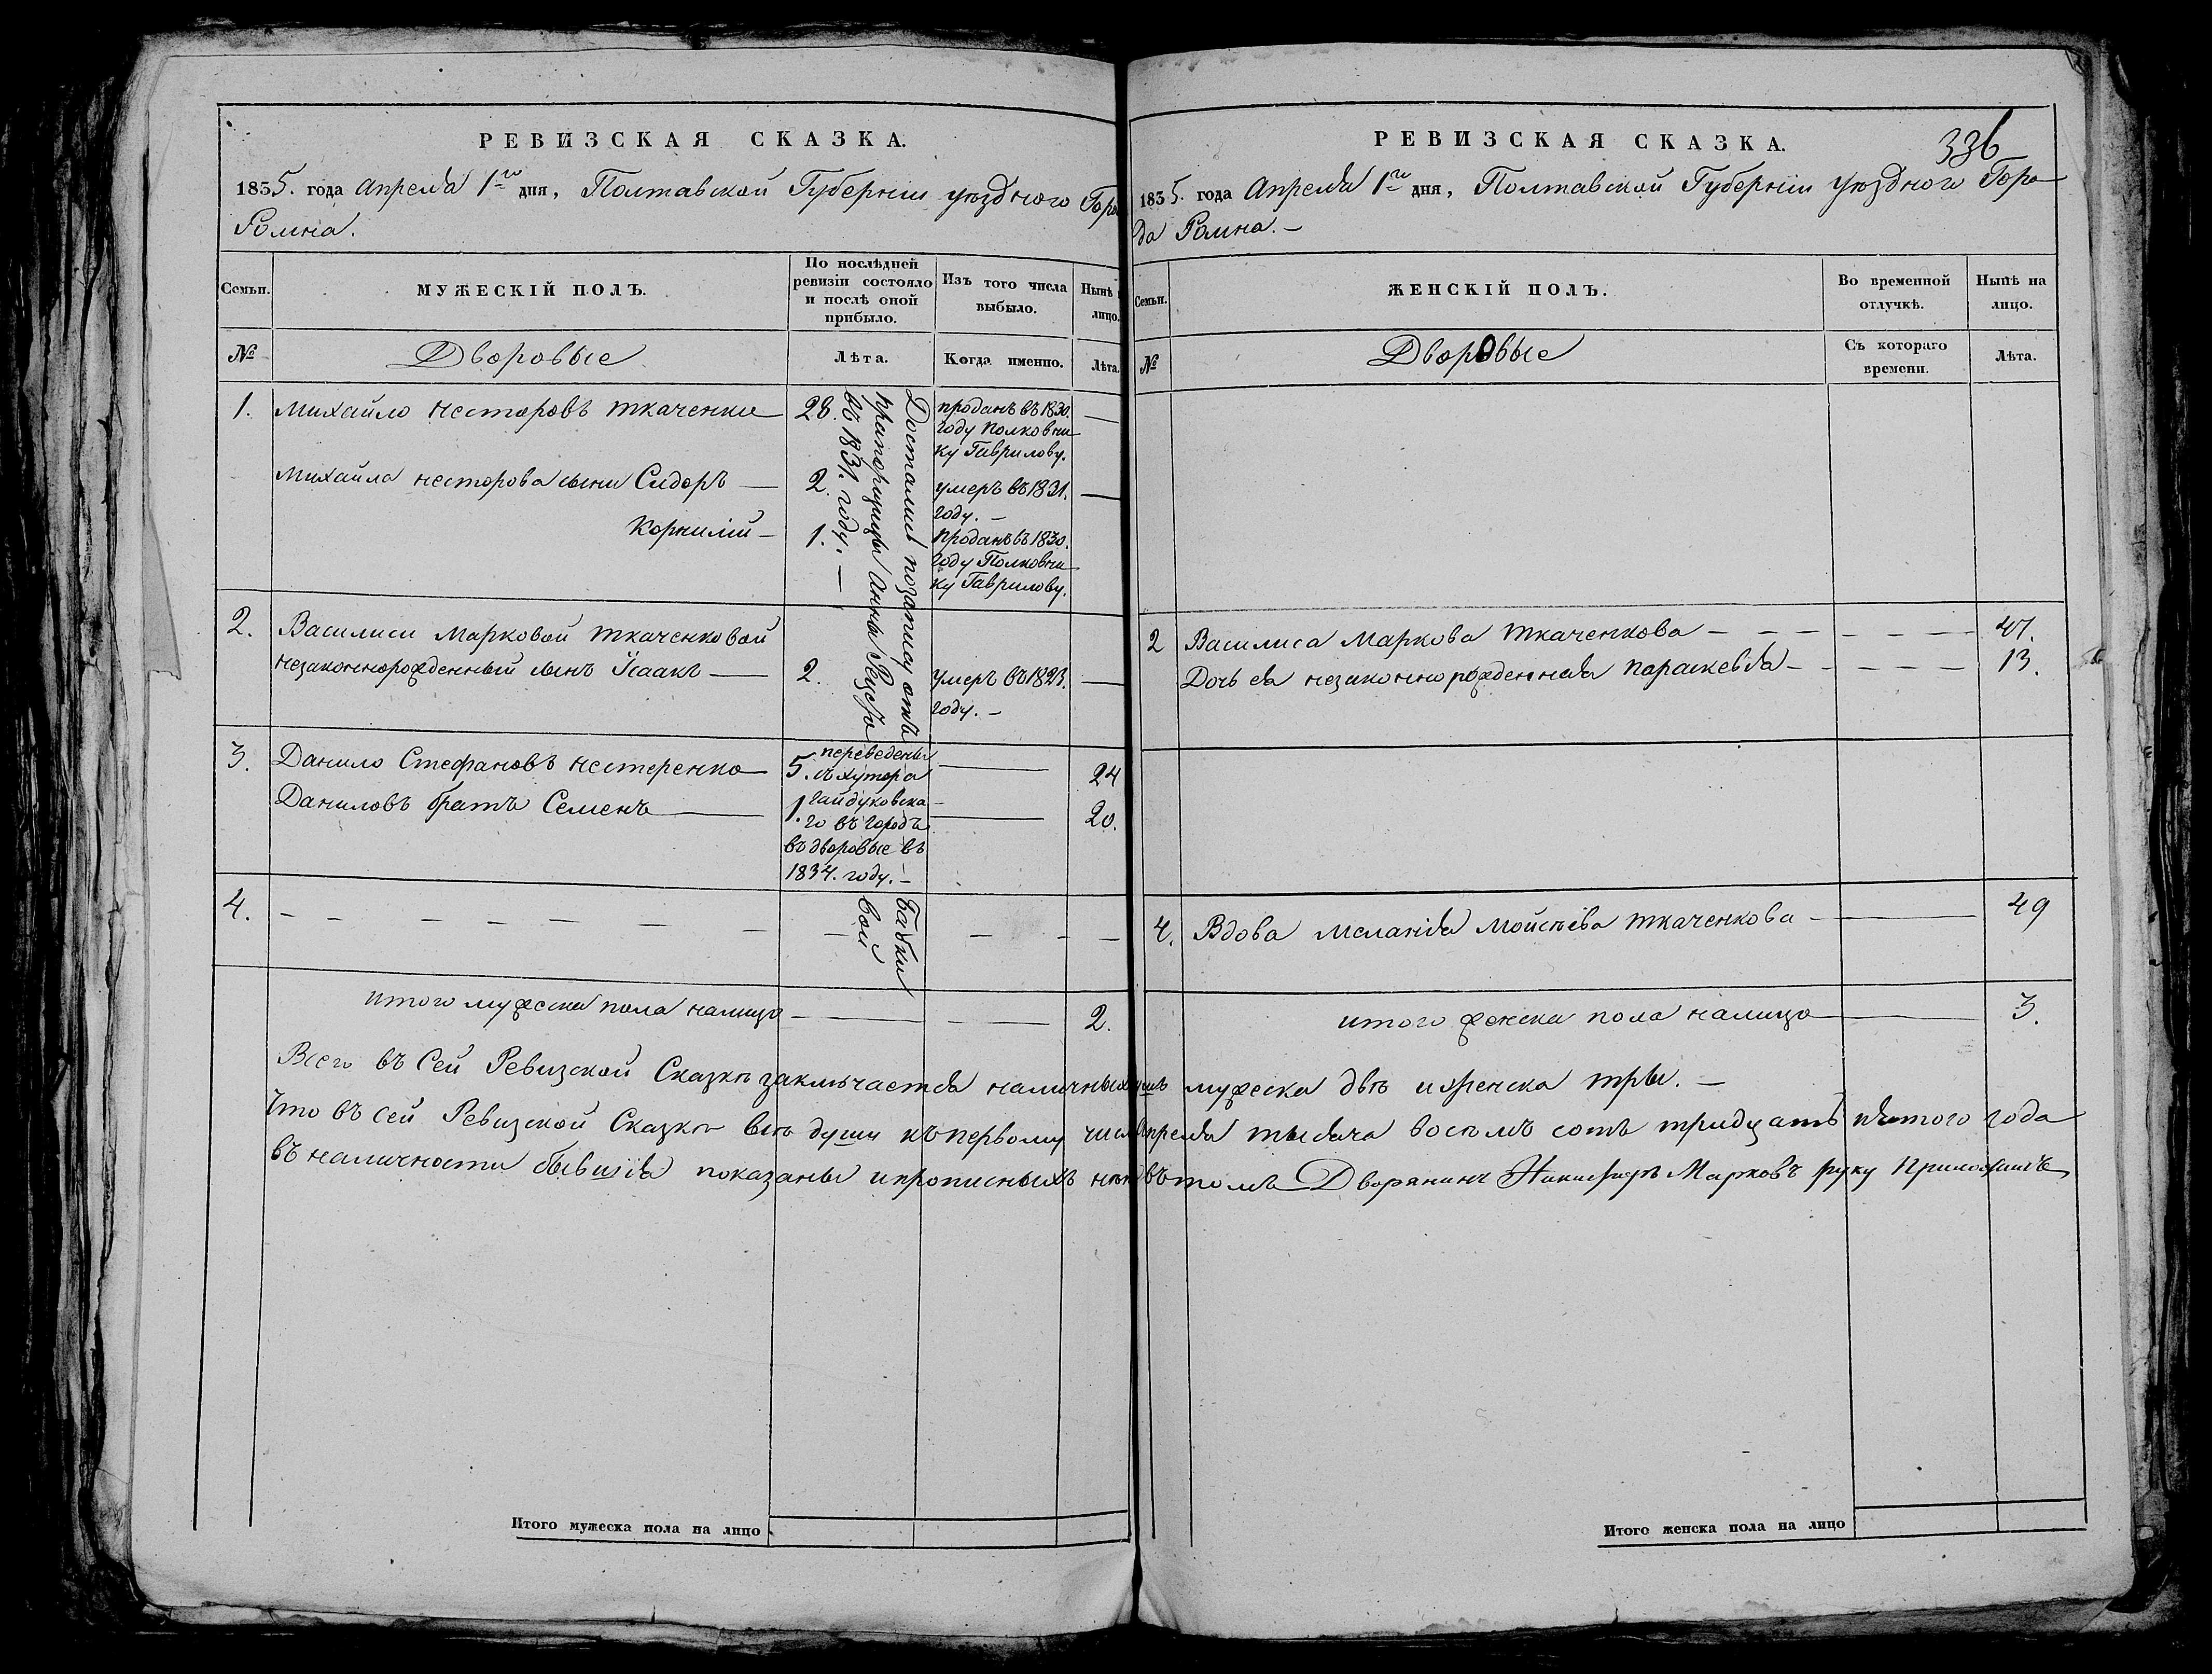 РЕВИЗСКАЯ СКАЗКА.
1835. года Апреля 1го дня, Полтавской Губернии уездного Горо
Ромна.
Семьи.
МУЖЕСКІЙ ПОЛЪ.
По послѣдней
ревизіи состояло
и послѣ оной
прибыло.
Изъ того числа
выбыло.
Нынѣ
лицо.
№
Дворовые
Лѣта.
Когда именно.
Лѣта.
1. Михайло Несторовъ Ткаченко 28. проданъ въ 1830.
году Полковни
ку Гаврилову.
Михайла Несторова сыни Сидоръ 2. умеръ въ 1831.
году. —
Корнилій — 1. проданъ въ 1830.
году Полковни
ку Гаврилову.
Достались по записи отъ
прапорщицы Анны
въ 1831. году. —
2. Василиси Марковой Ткаченковой
незаконнорожденный сынъ Исаакъ 2. умеръ въ 1823.
году. —
3. Данило Стефановъ Нестеренко 5. 24
Даниловъ братъ Семенъ 1. 20.
переведены
съ хутора
Гайдуковска
го въ городъ
въ дворовые въ
1834. году. —
4. — — — — — — —
Бабки
вой
итого мужеска пола налицо 2.
Всего въ Сей Ревизской Сказкѣ заключается наличныхъ
Что въ сей Ревизской Сказкѣ всѣ души къ первому числ
въ наличности бывшія показаны и прописныхъ нѣтъ
Итого мужеска пола на лицо
РЕВИЗСКАЯ СКАЗКА.
336
1835. года Апреля 1го дня, Полтавской Губернии уездного Горо
да Ромна. —
Семьи.
ЖЕНСКІЙ ПОЛЪ.
Во временной
отлучкѣ.
Нынѣ на
лицо.
№
Дворовые
Съ котораго
времени.
Лѣта.
2 Василиса Маркова Ткаченкова — — — — — — 47.
Дочь ея незаконнорожденная Параскевія — — — — — 13.
4. Вдова Меланія Мойсѣева Ткаченкова — 49
итого женска пола налицо 3.
мужеска двѣ и женска три. —
Апреля тысяча восемъ сотъ тридцать пятого года
въ томъ Дворянинъ Никифоръ Марковъ руку приложилъ
Итого женска пола на лицо